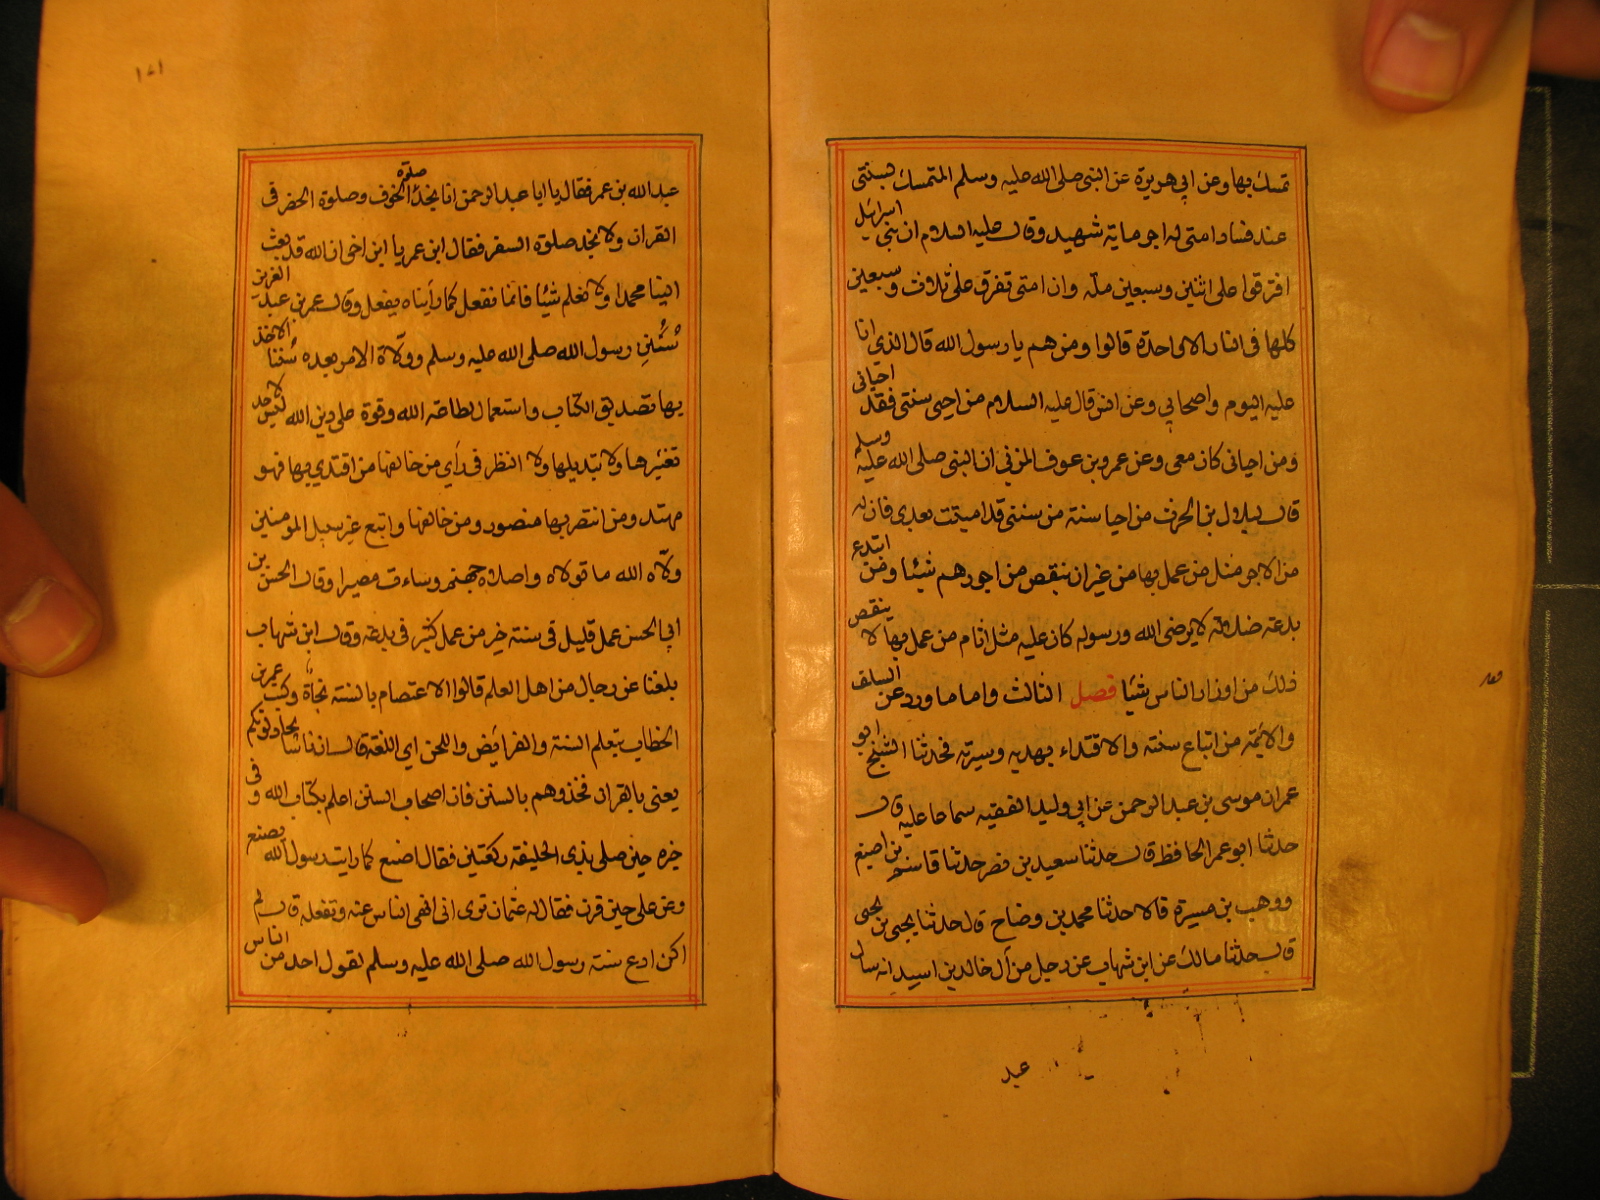 تمسك بها وعن ابي هريرة عن النبي صلى الله عليه وسلم المتمسك بسنتي
عند فساد امتي له اجر ماية شهيد وقال عليه السلام ان بني اسرائيل
افترقوا على اثنين وسبعين ملة وان امتى تفرق على ثلاث وسبعين
كلها فى النار الا واحدة قالوا ومن هم يا رسول الله قال الذى انا
عليه اليوم واصحابي وعن انس قال عليه السلام من احيى سنتى فقد احيانى
ومن احيانى كان معى وعن عمرو بن عوف المزني ان النبى صلى الله عليه وسلم
قال لبلال بن الحرث من احيا سنة من سنتى قد اميتت بعدى فان له
من الاجر مثل من عمل بها من غير ان ينقص من اجورهم شيئا ومن ابتدع
بدعة ضلالة لا يرضى الله ورسوله كان عليه مثل اثام من عمل بها لا ينقص
ذلك من اوزار الناس شيئا فصل الثالث واما ما ورد عن السلف
والائمة من اتباع سنته والاقتداء بهديه وسيرته فحدثنا الشيخ ابو
عمران موسى بن عبد الرحمن عن ابي وليد الفقيه سماعا عليه قال
حدثنا ابو عمر الحافظ قال حدثنا سعيد بن نصر حدثنا قاسم بن اصبغ
ووهب بن مسرة قالا حدثنا محمد بن وضاح قال حدثنا يحيى بن يحيى
قال حدثنا مالك عن ابن شهاب عن رجل من آل خالد بن اسيد انه سال
عبد
١٨١
عبد الله بن عمر فقال يا ابا عبد الرحمن انا نجد صلوة الخوف وصلوة الحضر فى
القران ولا نجد صلوة السفر فقال ابن عمر يا ابن اخى ان الله قد بعث
الينا محمدا ولا نعلم شيئا فانما نفعل كما رأيناه يفعل وقال عمر بن عبد العزيز
سنن رسول الله صلى الله عليه وسلم وولاة الامر بعده سننا الاخذ
بها تصديق الكتاب واستعمال لطاعة الله وقوة على دين الله ليس لاحد
تغييرها ولا تبديلها ولا النظر فى رأي من خالفها من اقتدي بها فهو
مهتد ومن انتصر بها منصور ومن خالفها واتبع غير سبيل المومنين
ولاه الله ما تولاه واصلاه جهنم وساءت مصيرا وقال الحسن بن
ابي الحسن عمل قليل فى سنة خير من عمل كثير فى بدعة وقال ابن شهاب
بلغنا عن رجال من اهل العلم قالوا الاعتصام بالسنة نجاة وكتب عمر بن
الخطاب بتعلم السنة والفرائض واللحن اي اللغة قال ان ناسا يجادلونكم
يعنى بالقران فخذوهم بالسنن فان اصحاب السنن اعلم بكتاب الله و فى
خبره حين صلى بذى الحليفة ركعتين فقال اصنع كما رايت رسول الله يصنع
وعن على حين قرن فقال له عثمان ترى انى انهى الناس عنه وتفعله قال لم
اكن ادع سنة رسول الله صلى الله عليه وسلم لقول احد من الناس